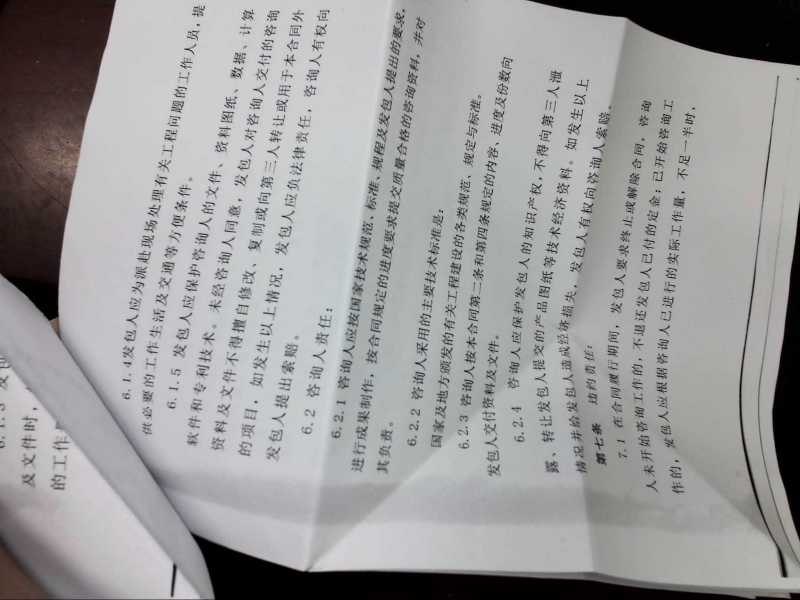 6.1.4发包人应为派赴现场处理有关工程问题的工作人员，提
供必要的工作生活及交通等方便条件。
6.1.5 发包人应保护咨询人的文件、资料图纸、数据、计算
软件和专利技术。未经咨询人同意，发包人对咨询人交付的咨询
资料及文件不得擅自修改、复制或向第三人转让或用于本合同外
的项目，如发生以上情况，发包人应负法律责任，咨询人有权向
发包人提出索赔。
6.2 咨询人责任：
6.2.1 咨询人应按国家技术规范、标准、规程及发包人提出的要求，
进行成果制作，按合同规定的进度要求提交质量合格的咨询资料，并对
其负责。
6.2.2 咨询人采用的主要技术标准是：
国家及地方颁发的有关工程建设的各类规范、规定与标准。
6.2.3 咨询人按本合同第二条和第四条规定的内容、进度及份数向
发包人交付资料及文件。
6.2.4 咨询人应保护发包人的知识产权，不得向第三人泄
露、转让发包人提交的产品图纸等技术经济资料。如发生以上
情况并给发包人造成经济损失，发包人有权向咨询人索赔。
第七条 违约责任：
7.1 在合同履行期间，发包人要求终止或解除合同，咨询
人未开始咨询工作的，不退还发包人已付的定金；已开始咨询工
作的，发包人应根据咨询人已进行的实际工作量，不足一半时，
及文件时，
的工作